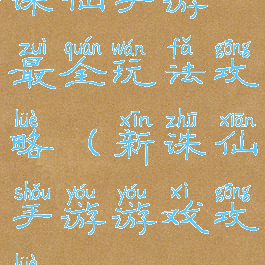 诛仙手游
zuì quán wán fǎ gōng
最全玩法攻
lüè xīn zhū xiān
略（新诛仙
shǒu yóu yóu xì gōng
手游游戏攻
lüè